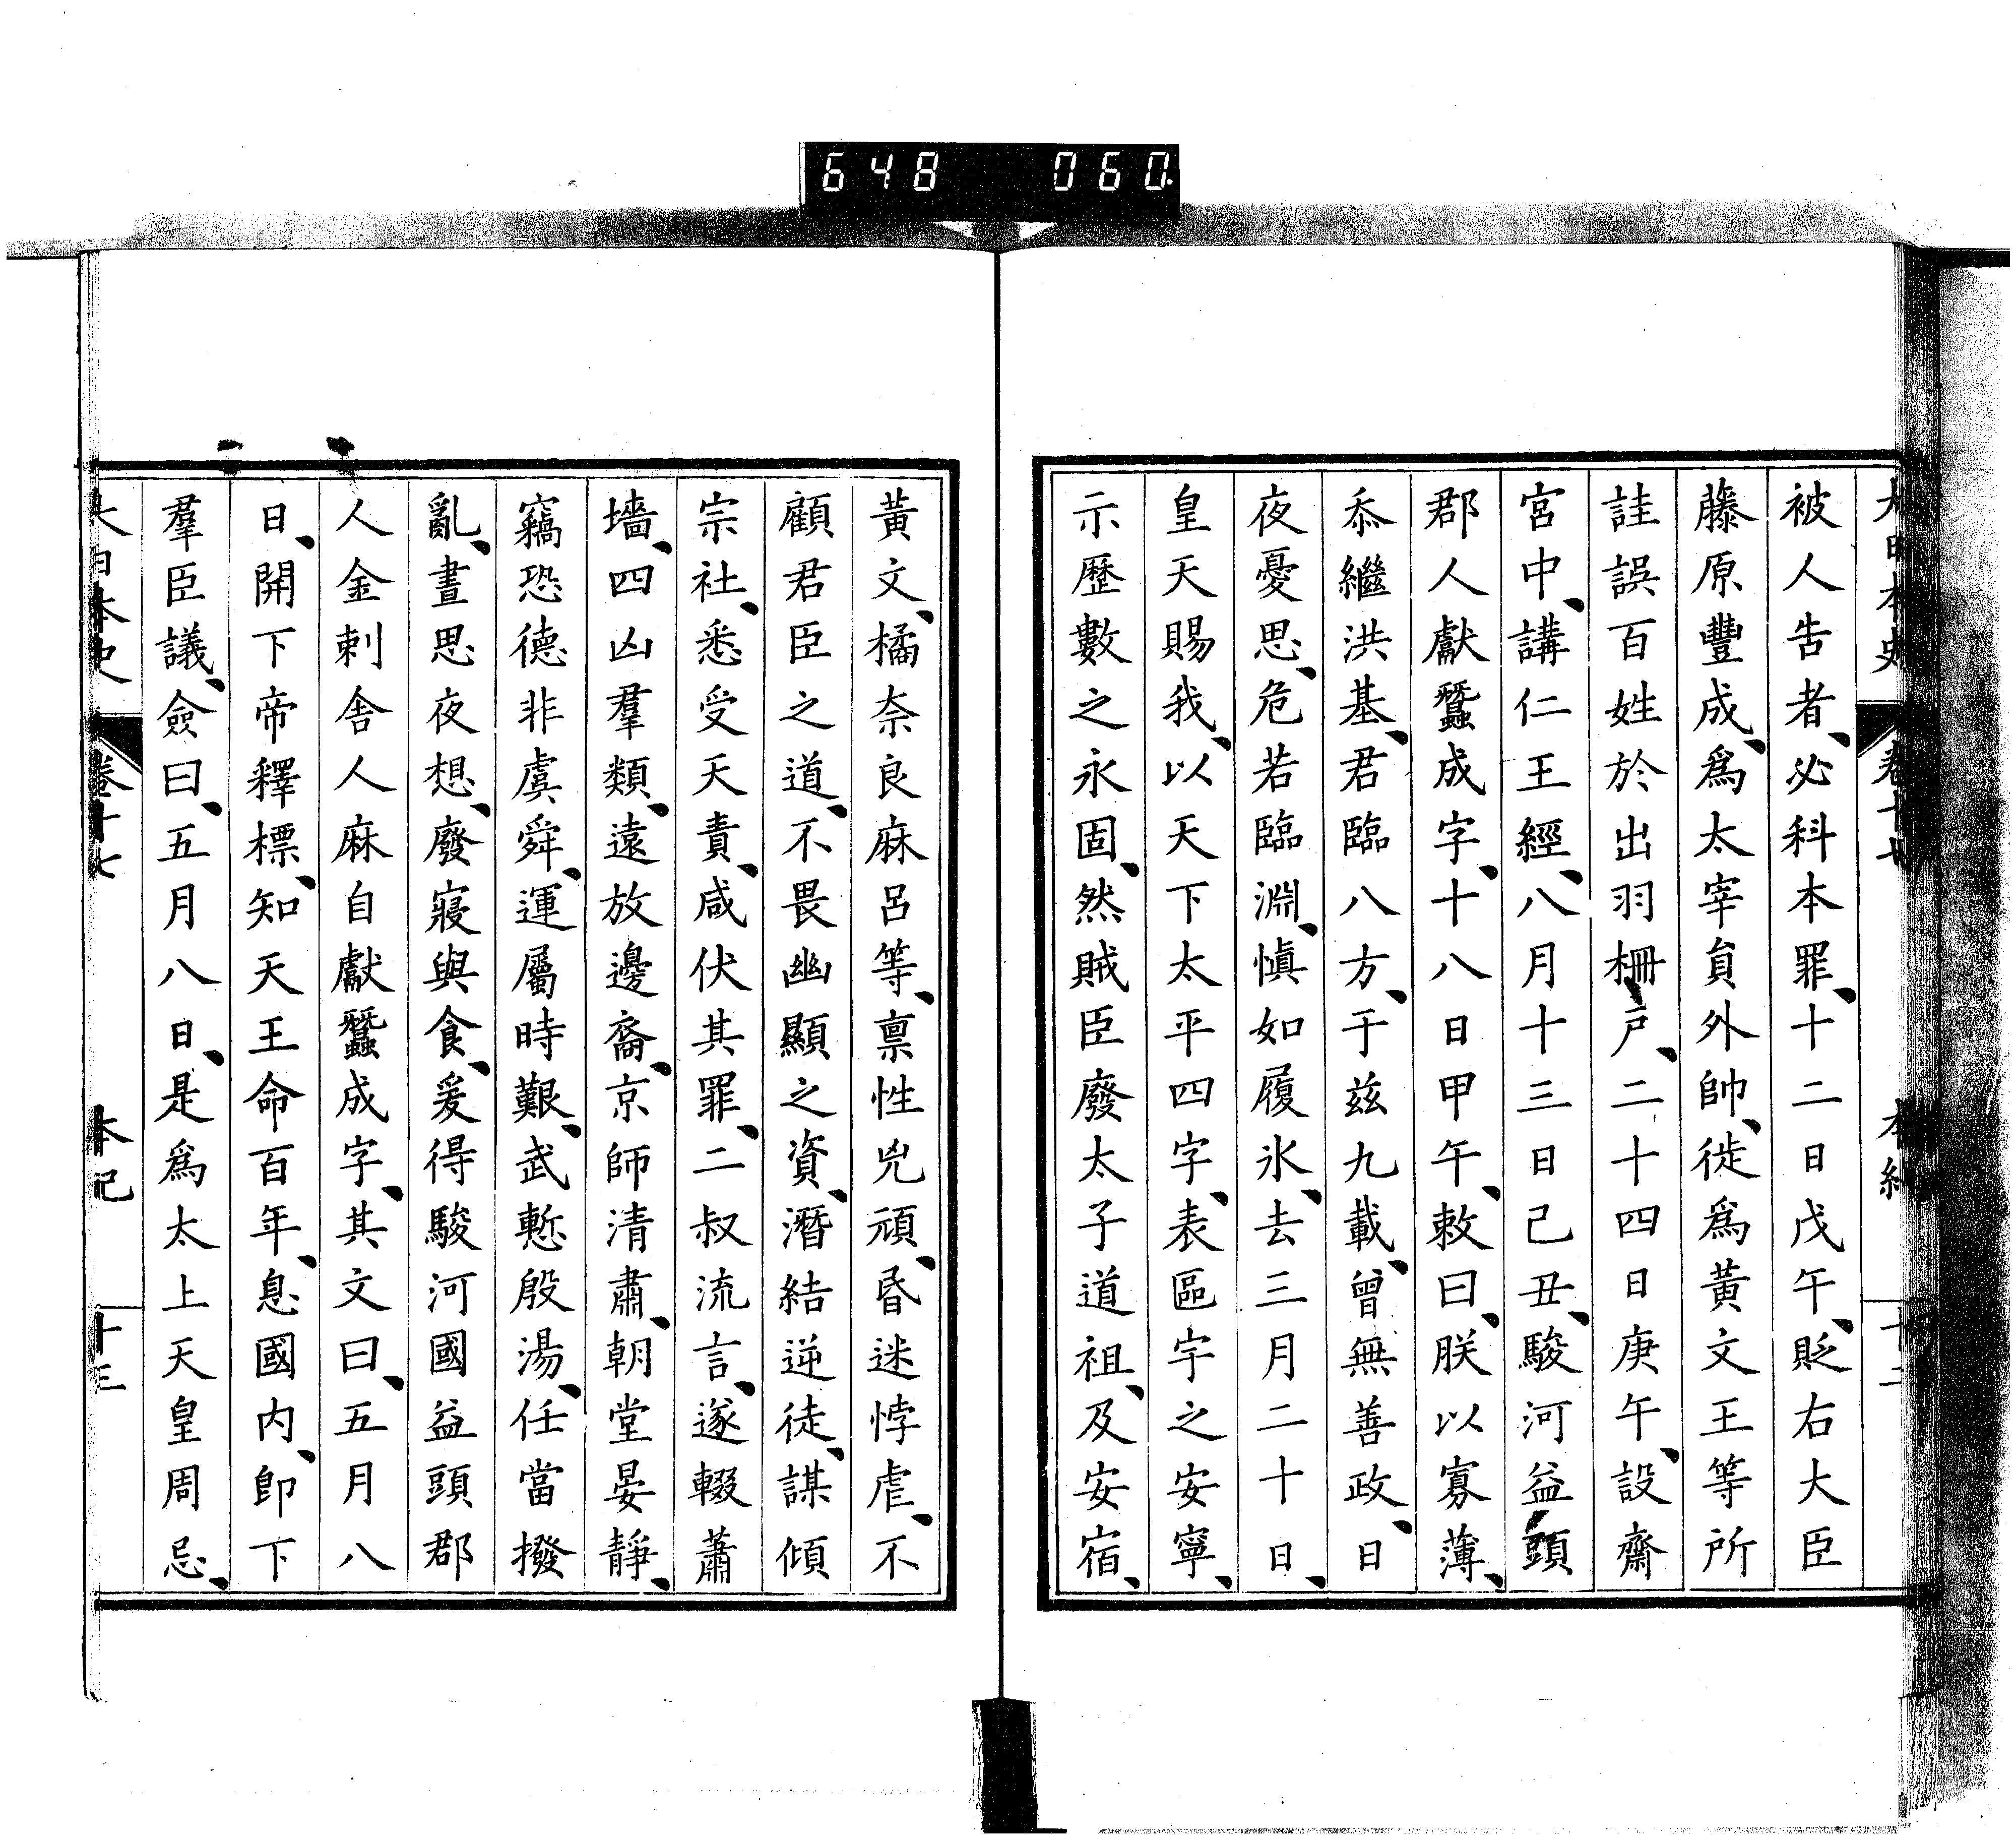 648 060
大日本史 卷十七 本紀 十二
被人告者、必科本罪、十二日戊午、貶右大臣
藤原豐成、爲太宰員外帥、徙爲黃文王等所
詿誤百姓於出羽柵戶、二十四日庚午、設齋
宮中、講仁王經、八月十三日己丑、駿河益頭
郡人獻蠶成字、十八日甲午、敕曰、朕以寡薄、
忝繼洪基、君臨八方、于茲九載、曾無善政、日
夜憂思、危若臨淵、愼如履氷、去三月二十日、
皇天賜我、以天下太平四字、表區宇之安寧、
示歷數之永固、然賊臣廢太子道祖、及安宿、
黃文、橘奈良麻呂等、禀性兇頑、昏迷悖虐、不
顧君臣之道、不畏幽顯之資、潛結逆徒、謀傾
宗社、悉受天責、咸伏其罪、二叔流言、遂輟蕭
墻、四凶羣類、遠放邊裔、京師清肅、朝堂晏靜、
竊恐德非虞舜、運屬時艱、武慙殷湯、任當撥
亂、晝思夜想、廢寢與食、爰得駿河國益頭郡
人金刺舍人麻自獻蠶成字、其文曰、五月八
日、開下帝釋標、知天王命百年、息國內、卽下
羣臣議、僉曰、五月八日、是爲太上天皇周忌、
大日本史 卷十七 本紀 十三